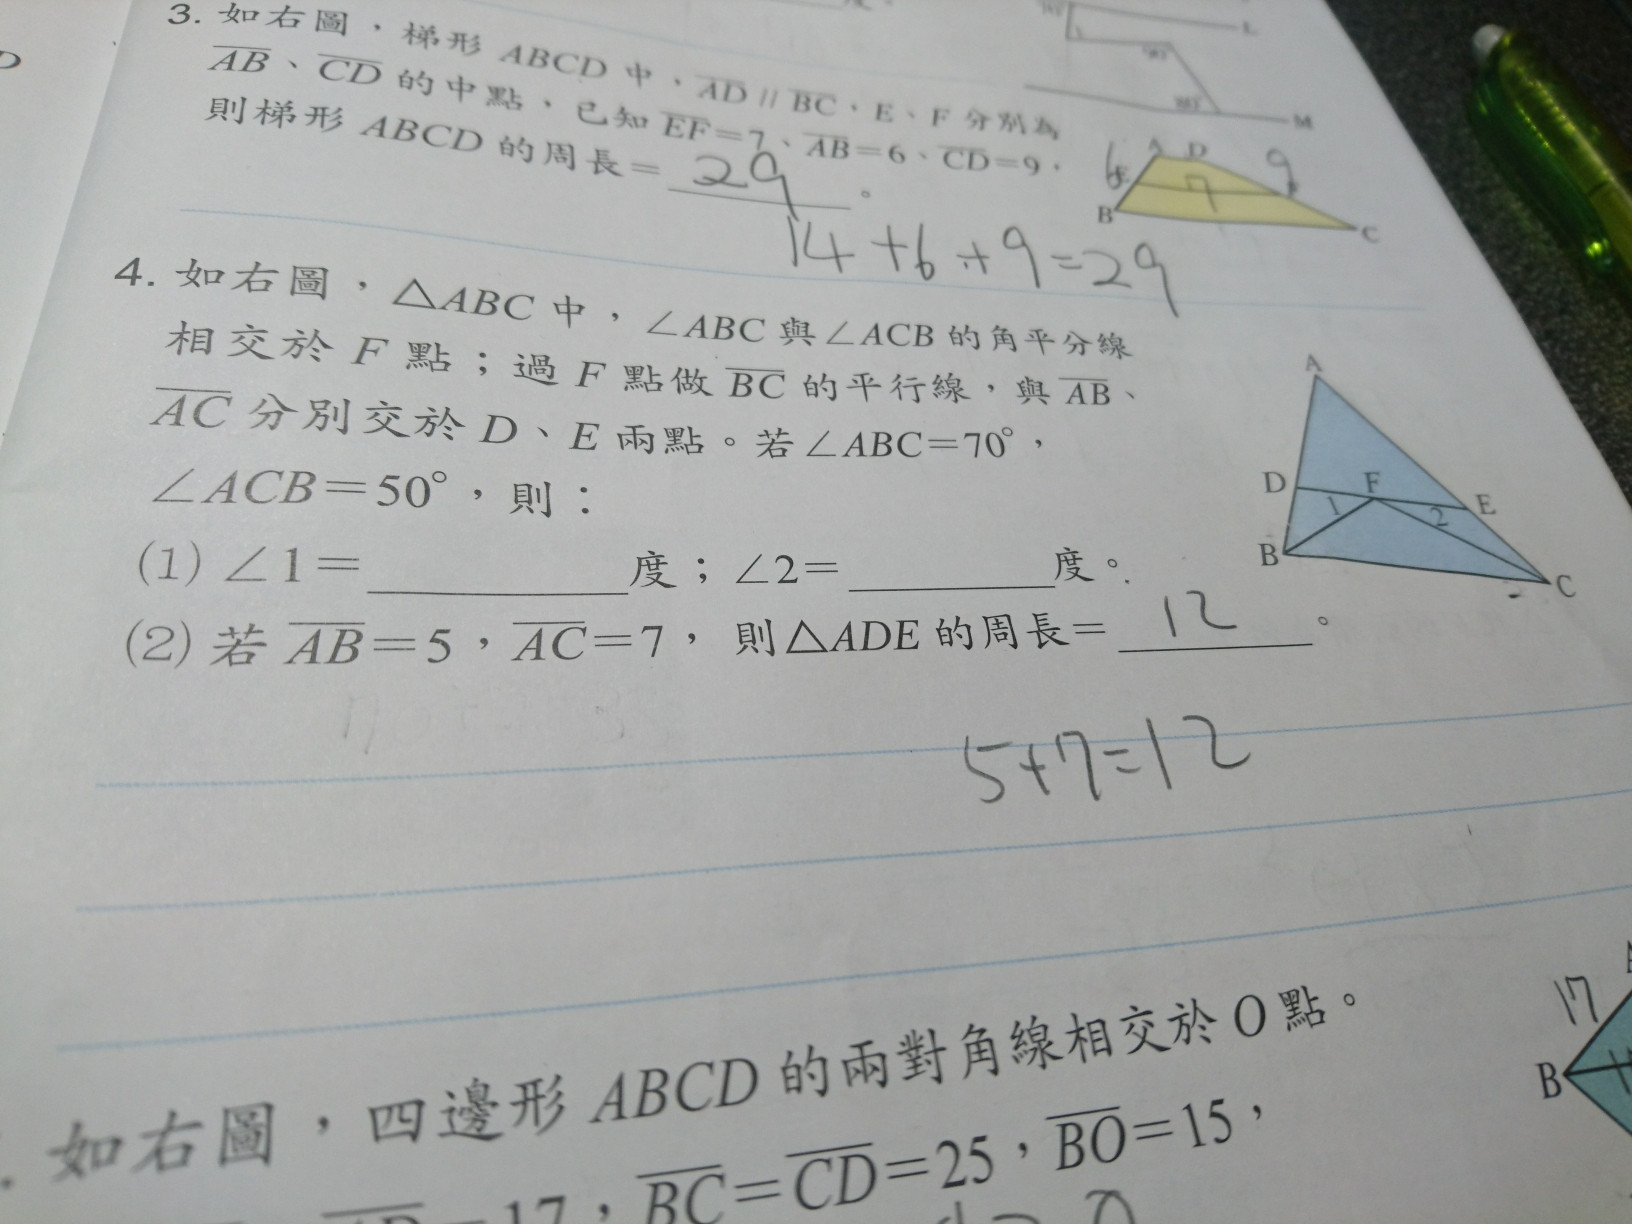 3. 如右圖，梯形 ABCD 中，AD // BC，E、F 分別為
AB、CD 的中點，已知 EF=7、AB=6、CD=9，
則梯形 ABCD 的周長= 29 。
14+6+9=29
L
M
A D
6 9
E 7 F
B C
4. 如右圖，△ABC 中，∠ABC 與∠ACB 的角平分線
相交於 F 點；過 F 點做 BC 的平行線，與 AB、
AC 分別交於 D、E 兩點。若∠ABC=70°，
∠ACB=50°，則：
(1) ∠1= 度；∠2= 度。
(2) 若 AB=5，AC=7， 則△ADE 的周長= 12 。
5+7=12
A
D F E
1 2
B C
如右圖，四邊形 ABCD 的兩對角線相交於 O 點。
=17，BC=CD=25，BO=15，
17
B
D